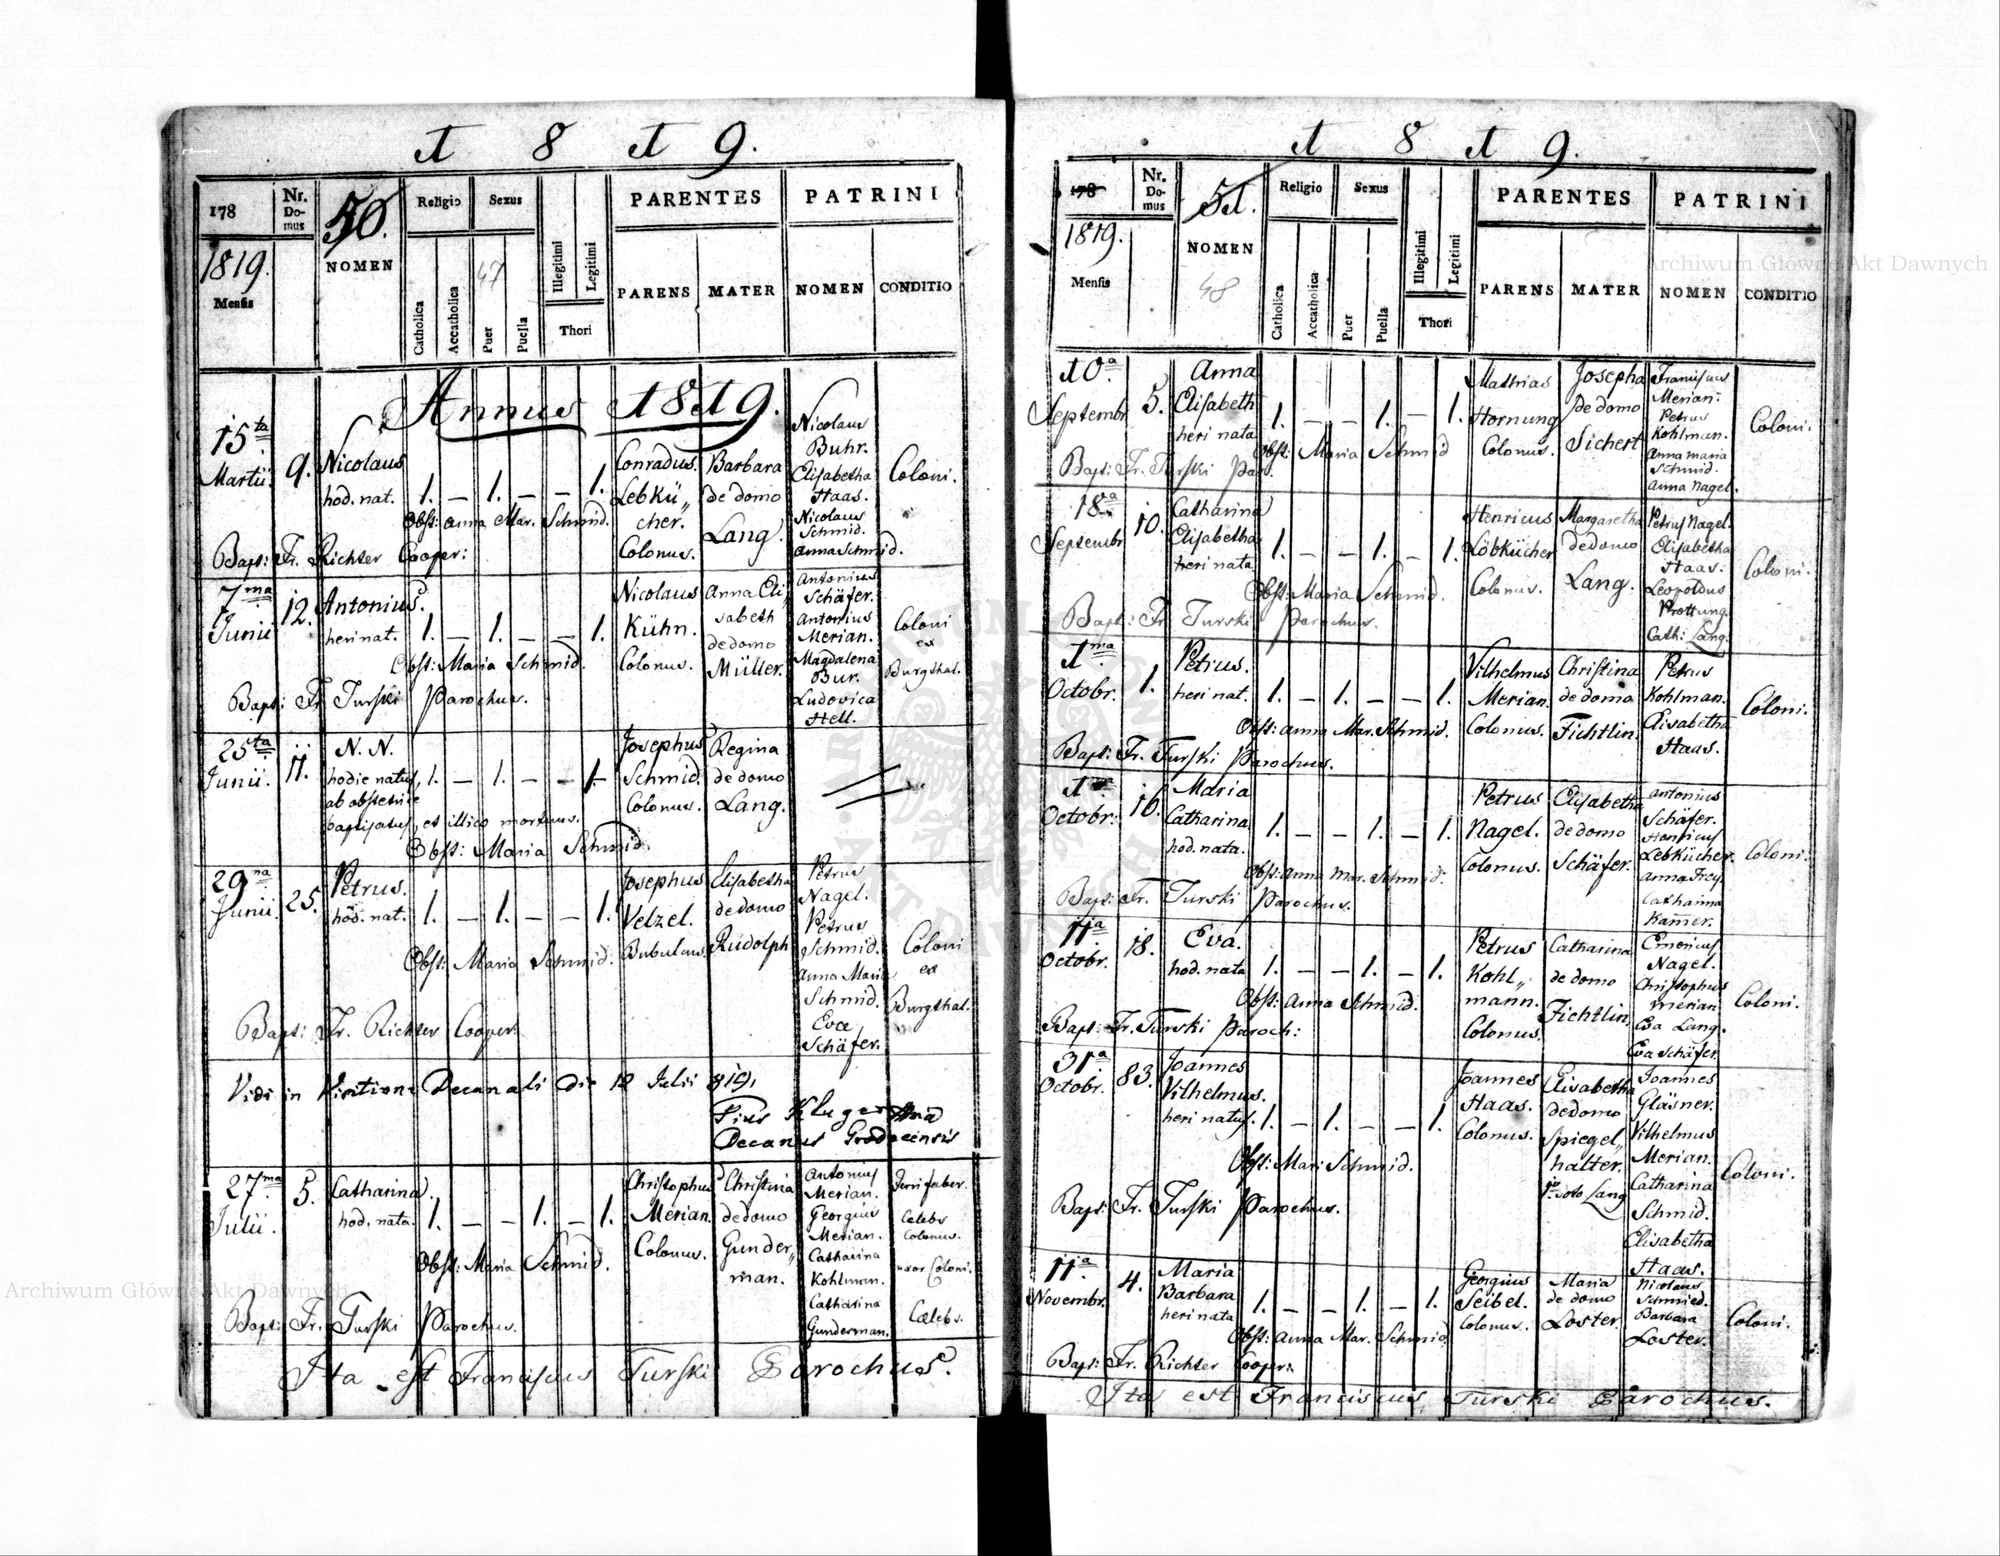 1819.
178
Nr. Domus
50.
Religio
Sexus
PARENTES
PATRINI
1819.
Mensis
NOMEN
47
Catholica
Accatholica
Puer
Puella
Illegitimi
Legitimi
Thori
PARENS
MATER
NOMEN
CONDITIO
Annus 1819.
15ta Martii.
9.
Nicolaus
hod. nat.
1. — 1. — — 1.
Obst: Anna Mar. Schmid.
Conradus
Lebkü-
cher.
Colonus.
Barbara
de domo
Lang.
Nicolaus
Buhr.
Elisabetha
Haas.
Nicolaus
Schmid.
Anna Schmid.
Coloni.
Bapt: Fr. Richter Cooper:
7ma Junii
12.
Antonius.
heri nat.
1. — 1. — — 1.
Obst: Maria Schmid.
Nicolaus
Kühn.
Colonus.
Anna Eli„
sabeth
de domo
Müller.
Antonius
Schäfer.
Antonius
Merian.
Magdalena
Bur.
Ludovica
Hell.
Coloni
ex
Burgthal.
Bapt: Fr. Turski Parochus.
25ta Junii.
11.
N. N.
hodie natus,
ab obstetrice
baptisatus, et illico mortuus.
1. — 1. — — 1.
Obst: Maria Schmid.
Josephus
Schmid.
Colonus.
Regina
de domo
Lang.
29na Junii.
25.
Petrus.
hod. nat.
1. — 1. — — 1.
Obst: Maria Schmid.
Josephus
Velzel.
Bubulcus.
Elisabetha
de domo
Rudolph
Petrus
Nagel.
Petrus
Schmid.
Anna Maria
Schmid.
Eva
Schäfer.
Coloni
ex
Burgthal.
Bapt: Fr. Richter Cooper:
Vidi in Visitione Decanali die 12 Julii 819.
Pius Kluger
Decanus Grodecensis
27ma Julii.
5.
Catharina.
hod. nata.
1. — — 1. — 1.
Obst: Maria Schmid.
Christophus
Merian.
Colonus.
Christina
de domo
Gunder„
man.
Antonius
Merian.
Georgius
Merian.
Catharina
Kohlman.
Catharina
Gunderman.
Ferrifaber.
Celebs
Colonus.
uxor Coloni.
Celebs.
Bapt: Fr. Turski Parochus.
Ita est Franciscus Turski Parochus.
1819.
178
Nr. Domus
51.
Religio
Sexus
PARENTES
PATRINI
1819.
Mensis
NOMEN
48
Catholica
Accatholica
Puer
Puella
Illegitimi
Legitimi
Thori
PARENS
MATER
NOMEN
CONDITIO
10a Septembr
5.
Anna
Elisabeth
heri nata
1. — — 1. — 1.
Obst: Maria Schmid
Mathias
Hornung
Colonus.
Josepha
de domo
Sichert
Franciscus
Merian.
Petrus
Kohlman.
Anna Maria
Schmid.
Anna Nagel.
Coloni.
Bapt: Fr. Turski Par.
18a Septembr
10.
Catharina
Elisabetha
heri nata
1. — — 1. — 1.
Obst: Maria Schmid.
Henricus
Löbkücher
Colonus.
Margaretha
de domo
Lang.
Petrus Nagel.
Elisabetha
Haas.
Leopoldus
Prottung.
Cath: Lang.
Coloni.
Bapt: Fr Turski Parochus.
1ma Octobr.
1.
Petrus.
heri nat.
1. — 1. — — 1.
Obst: Anna Mar. Schmid.
Vilhelmus
Merian.
Colonus.
Christina
de domo
Fichtlin.
Petrus
Kohlman.
Elisabetha
Haas.
Coloni.
Bapt: Fr. Turski Parochus.
Octobr.
16.
Maria
Catharina
hod. nata.
1. — — 1. — 1.
Obst: Anna Mar. Schmid.
Petrus
Nagel.
Colonus.
Elisabetha
de domo
Schäfer.
Antonius
Schäfer.
Henricus
Lebkücher.
Anna Frey.
Catharina
Kammer.
Coloni.
Bapt: Fr. Turski Parochus.
11a Octobr.
18.
Eva.
hod. nata
1. — — 1. — 1.
Obst: Anna Schmid.
Petrus
Kohl„
mann.
Colonus.
Catharina
de domo
Fichtlin.
Emericus
Nagel.
Christophus
Merian
Eva Lang.
Eva Schäfer.
Coloni.
Bapt: Fr. Turski Paroch:
31a Octobr.
83.
Joannes
Vilhelmus.
heri natus.
1. — 1. — — 1.
Obst: Mari Schmid.
Joannes
Haas.
Colonus.
Elisabetha
de domo
Spiegel„
halter.
Lang
Joannes
Gläsner.
Vilhelmus
Merian.
Catharina
Schmid.
Elisabetha
Haas.
Coloni.
Bapt: Fr. Turski Parochus.
11a Novembr.
4.
Maria
Barbara
heri nata
1. — — 1. — 1.
Obst: Anna Mar. Schmid.
Georgius
Seibel.
Colonus.
Maria
de domo
Loster.
Nicolaus
Schmied.
Barbara
Loster.
Coloni.
Bapt: Fr. Richter Cooper:
Ita est Franciscus Turski Parochus.
Archiwum Główne Akt Dawnych
Archiwum Główne Akt Dawnych
ARCHIWUM GŁÓWNE AKT DAWNYCH